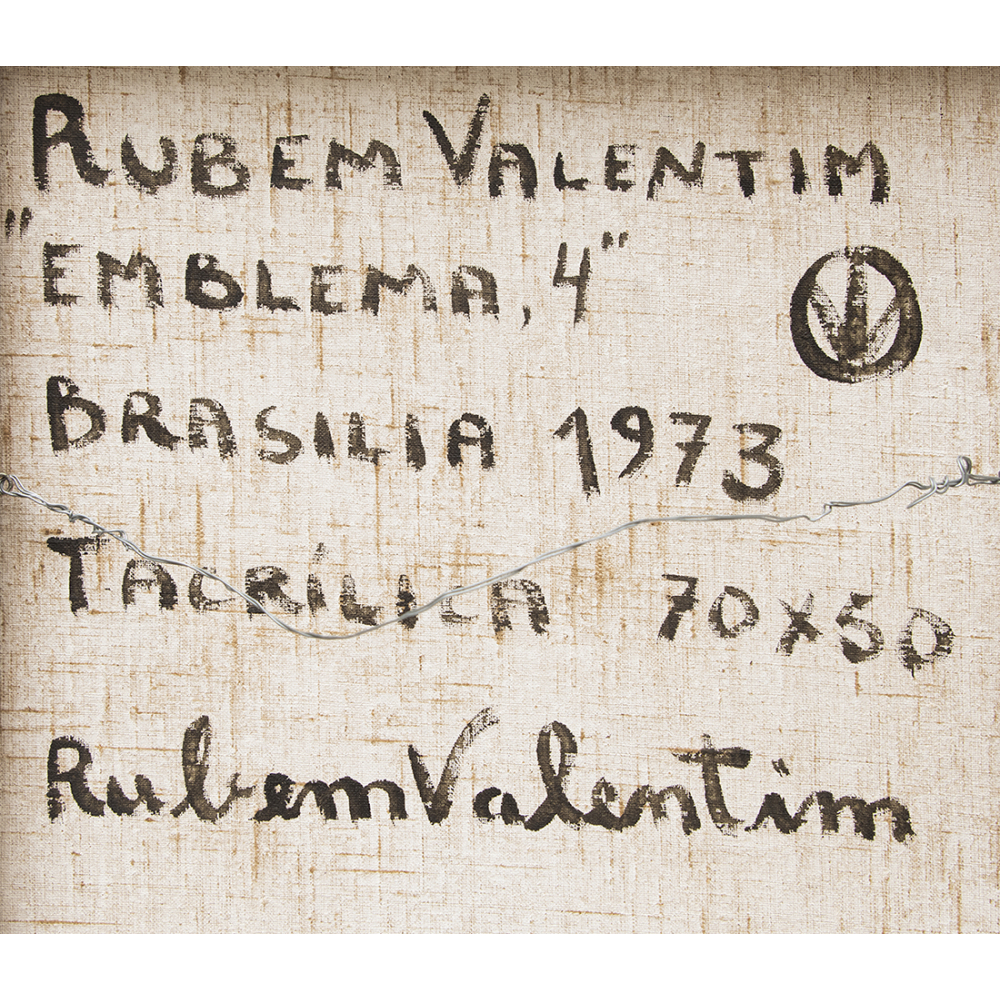 RUBEM VALENTIM
"EMBLEMA, 4"
BRASILIA 1973
TACRÍLICA 70x50
Rubem Valentim